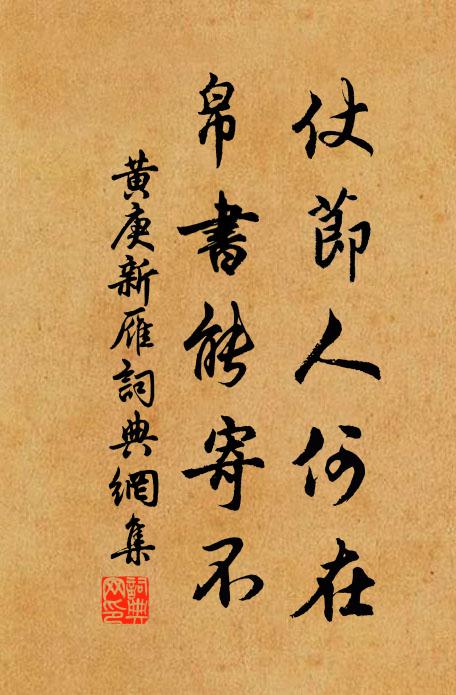 仗節人何在
帛書能寄不
黃庚新雁詞典網集
詞典網印